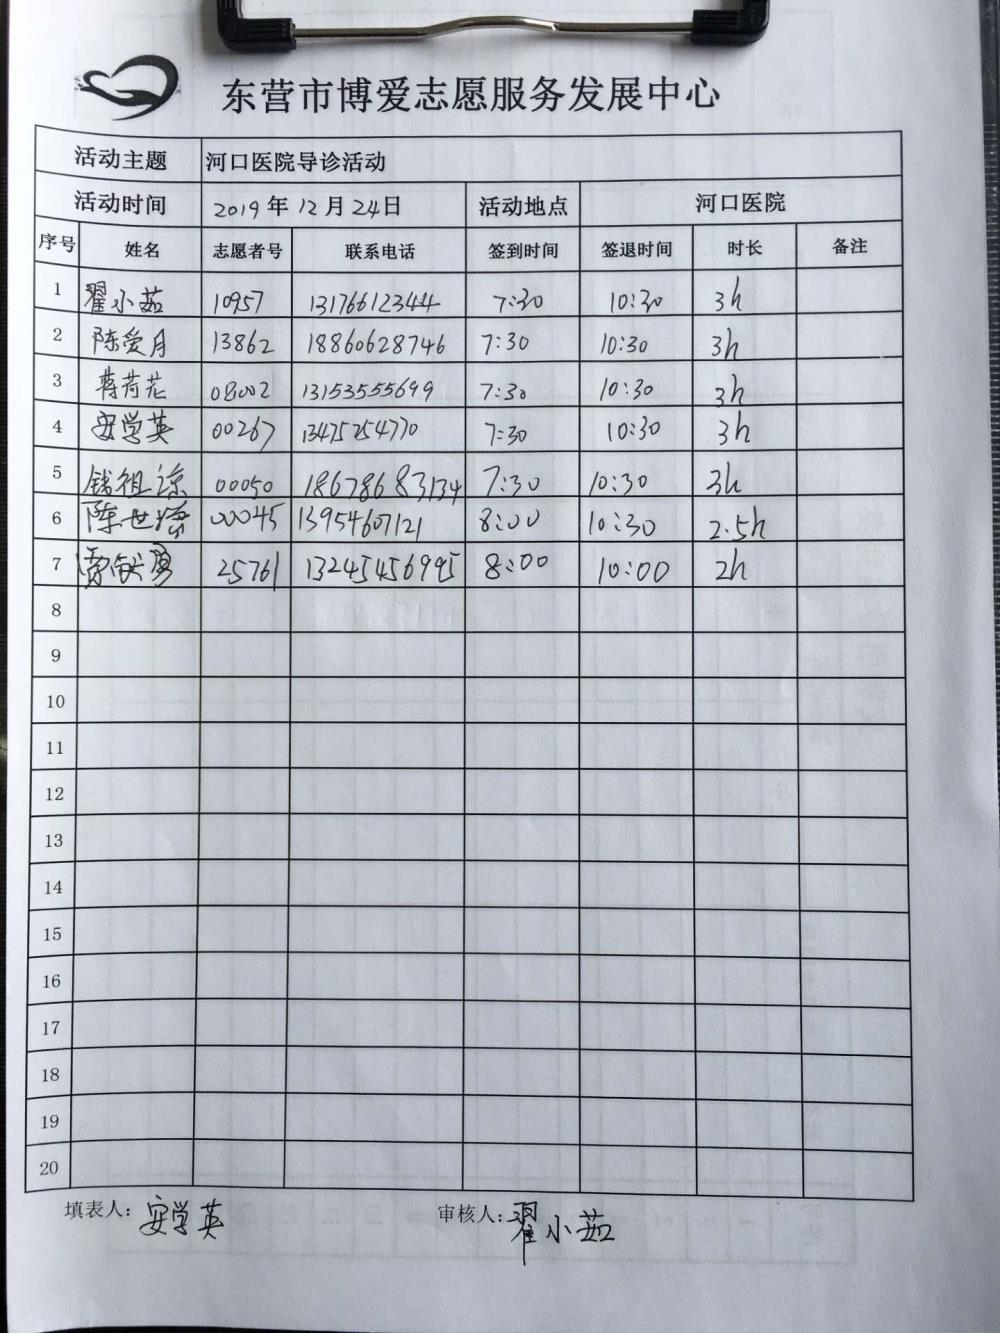 东营市博爱志愿服务发展中心
活动主题 河口医院导诊活动
活动时间 2019年12月24日 活动地点 河口医院
序号 姓名 志愿者号 联系电话 签到时间 签退时间 时长 备注
1 翟小茹 10957 13176612344 7:30 10:30 3h
2 陈爱月 13862 18860628746 7:30 10:30 3h
3 蒋荷花 08002 13153555699 7:30 10:30 3h
4 安学英 00267 13475254770 7:30 10:30 3h
5 钱祖 00050 18678683134 7:30 10:30 3h
6 陈世 00045 13954607121 8:00 10:30 2.5h
7 25761 13245456995 8:00 10:00 2h
8
9
10
11
12
13
14
15
16
17
18
19
20
填表人：安学英 审核人：翟小茹